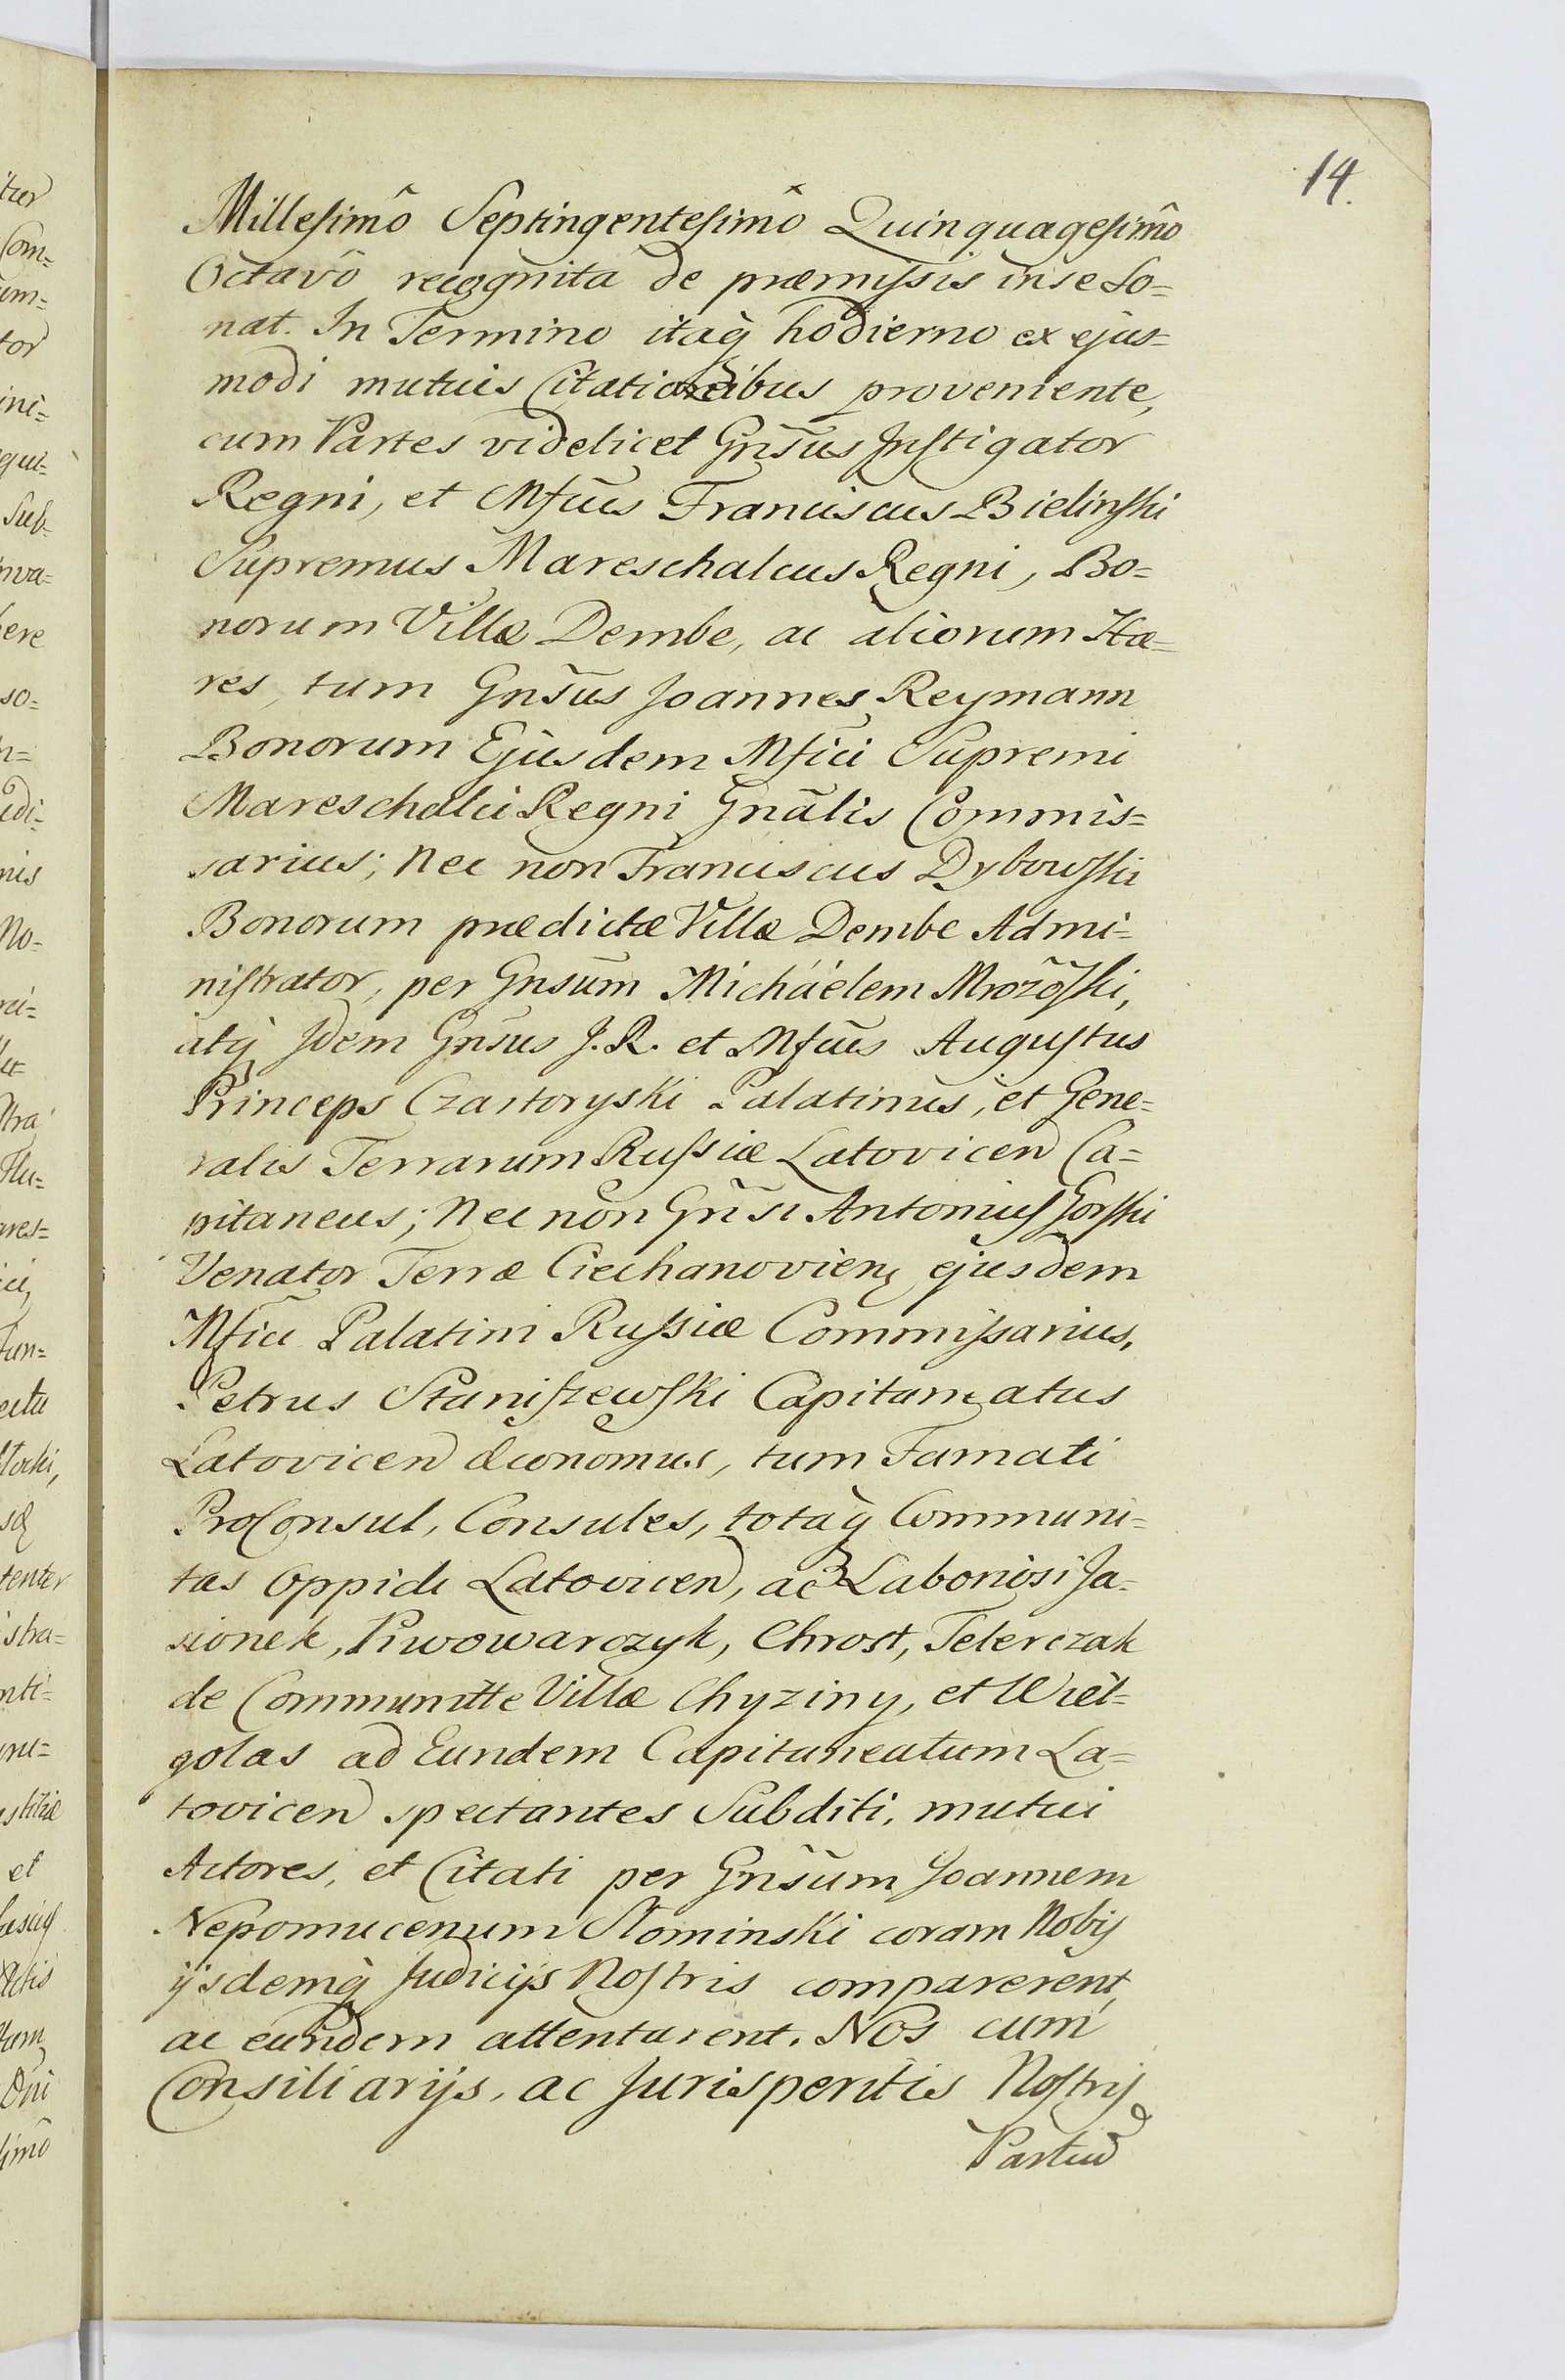 14.
Millesimô Septingentesimô Quinquagesimô
Octavô recognita de præmissis in se So=
nat. In Termino itaq̀ hodierno ex ejus=
modi mutuis Citationibus proveniente,
cum Partes videlicet Gnsus Instigator
Regni, et Mfcus Franciscus Bielinski
Supremus Mareschalcus Regni, Bo=
norum Villæ Dembe, ac aliorum Hæ=
res, tum Gnsus Joannes Reymann
Bonorum Ejusdem Mfici Supremi
Mareschalci Regni Gnãlis Commis=
sarius; Nec non Franciscus Dybowski
Bonorum prædictæ Villæ Dembe Admi=
nistrator, per Gnsum Michaélem Mrozoski,
atq̀ Idem Gnsus J. R. et Mfcus Augustus
Princeps Czartoryski Palatinus, et Gene=
ralis Terrarum Russiæ Latovicen Ca=
pitaneus; Nec non Gnsi Antonius Gorski
Venator Terræ Ciechanovien, ejusdem
Mfici Palatini Russiæ Commissarius,
Petrus Staniszewski Capitaneatus
Latovicen Œconomus, tum Famati
ProConsul, Consules, totaq̀ Communi=
tas Oppidi Latovicen, ac Laboriosi Ja=
sionek, Piwowarczyk, Chrost, Telerczak
de Communitte Villæ Chyziny, et Wiel=
golas ad Eundem Capitaneatum La=
tovicen spectantes Subditi, mutui
Actores, et Citati per Gnsum Joannem
Nepomucenum Slominski coram Nobis
ijsdemq̀ Judicijs Nostris comparerent,
ac eundem attentarent. Nos cum
Consiliarijs, ac Jurisperitis Nostris
Partiu